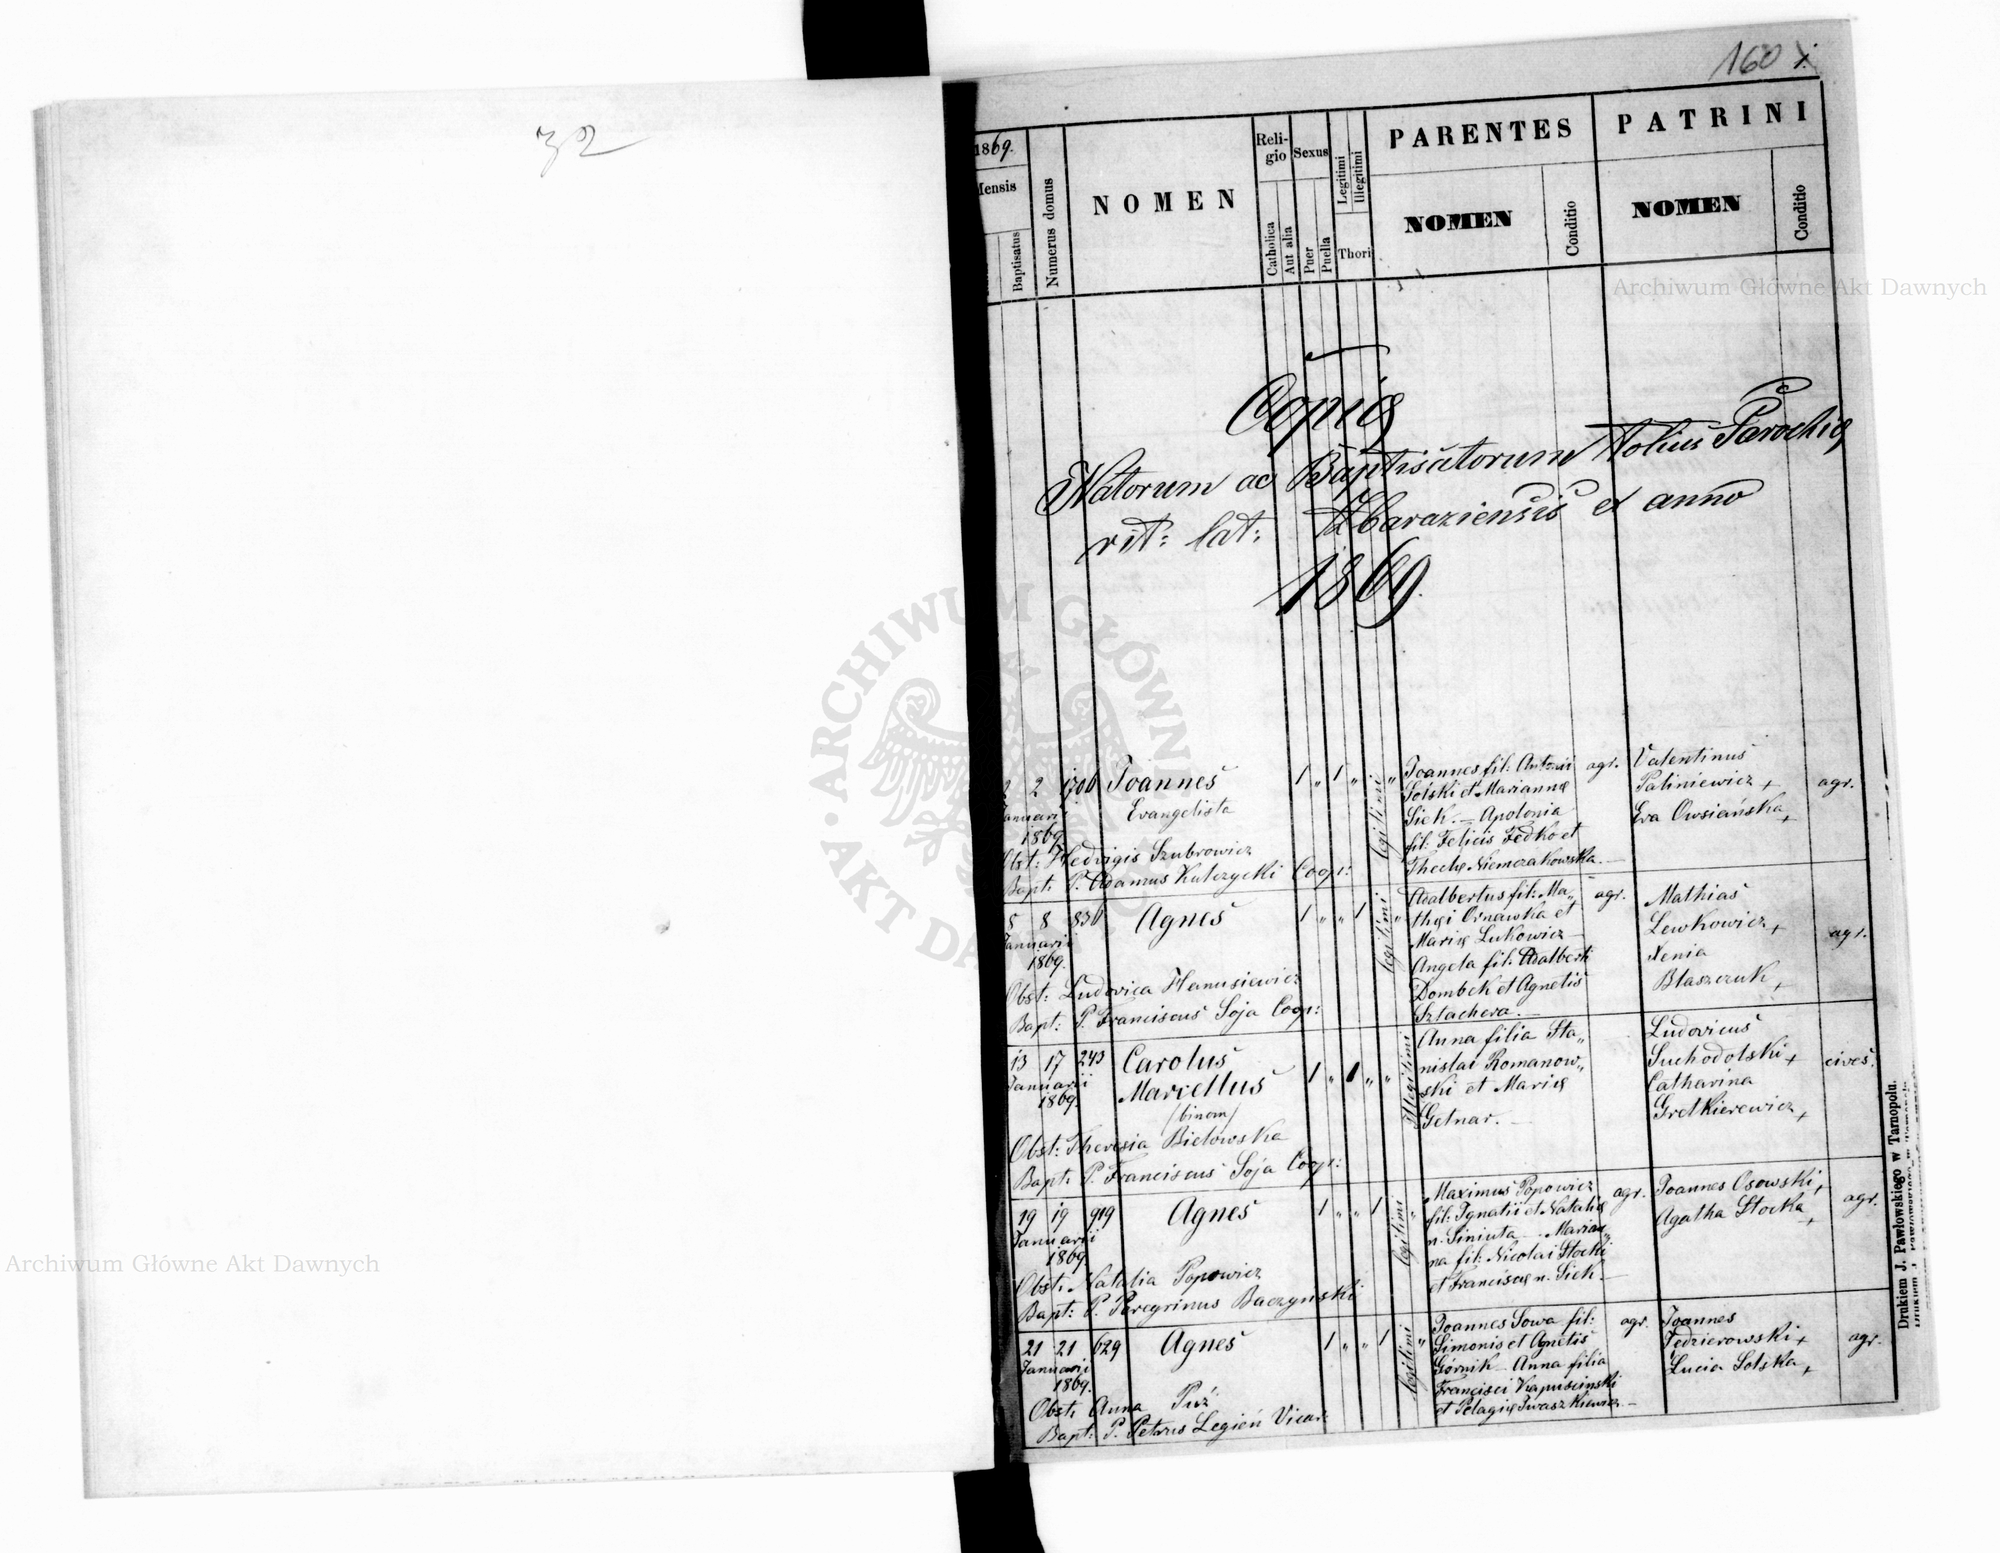 32
160
1869.
Mensis
Baptisatus
Numerus domus
NOMEN
Religio
Catholica
Aut alia
Sexus
Puer
Puella
Legitimi
Illegitimi
Thori
PARENTES
NOMEN
Conditio
PATRINI
NOMEN
Conditio
Copia
Natorum ac Baptisatorum totius Parochię
rit: lat: Zbaraziensis ex anno
1869.
2 2 170b Joannes 1 „ 1 „ legitimi „
Januarii
1869
Evangelista
Obst: Hedvigis Szubrowicz
Bapt: P. Adamus Kulczycki Coop:
Joannes fil: Antonii
Solski et Mariannę
Siek. — Apolonia
fil: Felicis Fedko et
Theclę Niemczakowska. —
agr.
Valentinus
Paliniewicz +
Eva Owsiańska +
agr.
8 8 836 Agnes 1 „ „ 1 legitimi „
Januarii
1869.
Obst: Ludovica Hanusiewicz
Bapt: P. Franciscus Soja Coop:
Adalbertus fil: Ma„
thęi Ornawka et
Marię Lukowicz —
Angela fil: Adalberti
Dombek et Agnetis
Szlachera. —
agr.
Mathias
Lewkowicz +
Xenia
Błaszczuk +
agr.
13 17 243 Carolus
Januarii
1869.
Marcellus 1 „ 1 „ „ Illegitimi
/binom/
Obst: Theresia Bielowska
Bapt: P. Franciscus Soja Coop:
Anna filia Sta„
nislai Romanow„
ski et Marię
Getnar. —
Ludovicus
Suchodolski +
Catharina
Gretkierewicz +
cives.
19 19 919 Agnes 1 „ „ 1 legitimi „
Januarii
1869
Obst: Natalia Popowicz
Bapt: P. Peregrinus Baczynski
Maximus Popowicz
fil: Ignatii et Natalię
n. Siniuta — Marian„
na fil: Nicolai Stocki
et Franciscę n. Siek. —
agr.
Joannes Osowski +
Agatha Stocka +
agr.
21 21 629 Agnes 1 „ „ 1 legitimi „
Januarii
1869.
Obst: Anna Puź
Bapt: P. Petrus Legień Vicar:
Joannes Sowa fil:
Simonis et Agnetis
Górnik — Anna filia
Francisci Kapuscinski
et Pelagię Iwaszkiewicz —
agr.
Joannes
Fedzierowski +
Lucia Solska +
agr.
Drukiem J. Pawłowskiego w Tarnopolu.
Archiwum Główne Akt Dawnych
Archiwum Główne Akt Dawnych
ARCHIWUM GŁÓWNE AKT DAWNYCH